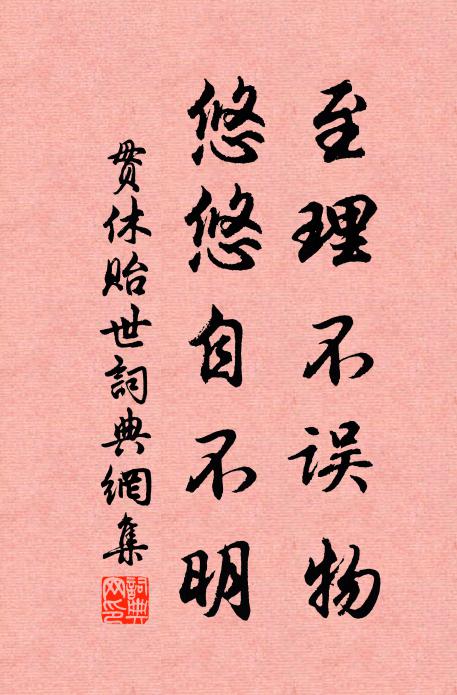 至理不误物
悠悠自不明
贯休贻世詞典網集
詞典网印